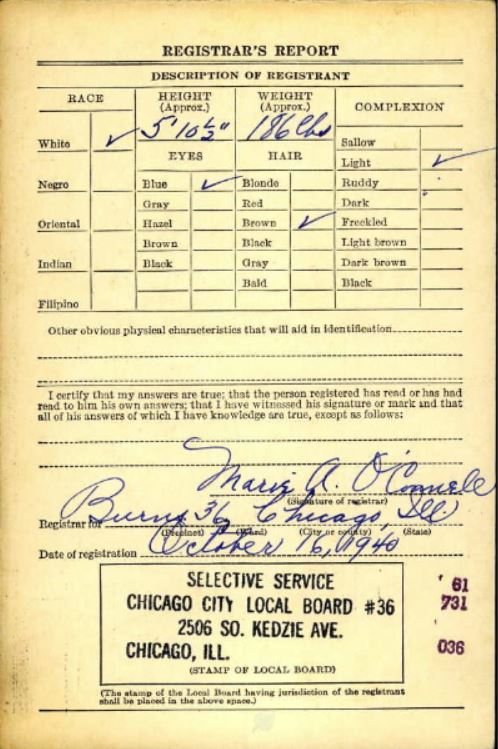 REGISTRAR'S REPORT
DESCRIPTION OF REGISTRANT
RACE
HEIGHT (Approx.)
WEIGHT (Approx.)
COMPLEXION
5' 10 1/2"
186 lbs
White ✓
EYES
HAIR
Sallow
Light ✓
Negro
Blue ✓
Blonde
Ruddy
Gray
Red
Dark
Oriental
Hazel
Brown ✓
Freckled
Brown
Black
Light brown
Indian
Black
Gray
Dark brown
Bald
Black
Filipino
Other obvious physical characteristics that will aid in identification
I certify that my answers are true; that the person registered has read or has had
read to him his own answers; that I have witnessed his signature or mark and that
all of his answers of which I have knowledge are true, except as follows:
Marie A. O'Connell
(Signature of registrar)
Registrar for Burns 36 Chicago, Ill
(Precinct) (Ward) (City or county) (State)
Date of registration October 16, 1940
SELECTIVE SERVICE
CHICAGO CITY LOCAL BOARD #36
2506 SO. KEDZIE AVE.
CHICAGO, ILL.
(STAMP OF LOCAL BOARD)
61
731
036
(The stamp of the Local Board having jurisdiction of the registrant
shall be placed in the above space.)